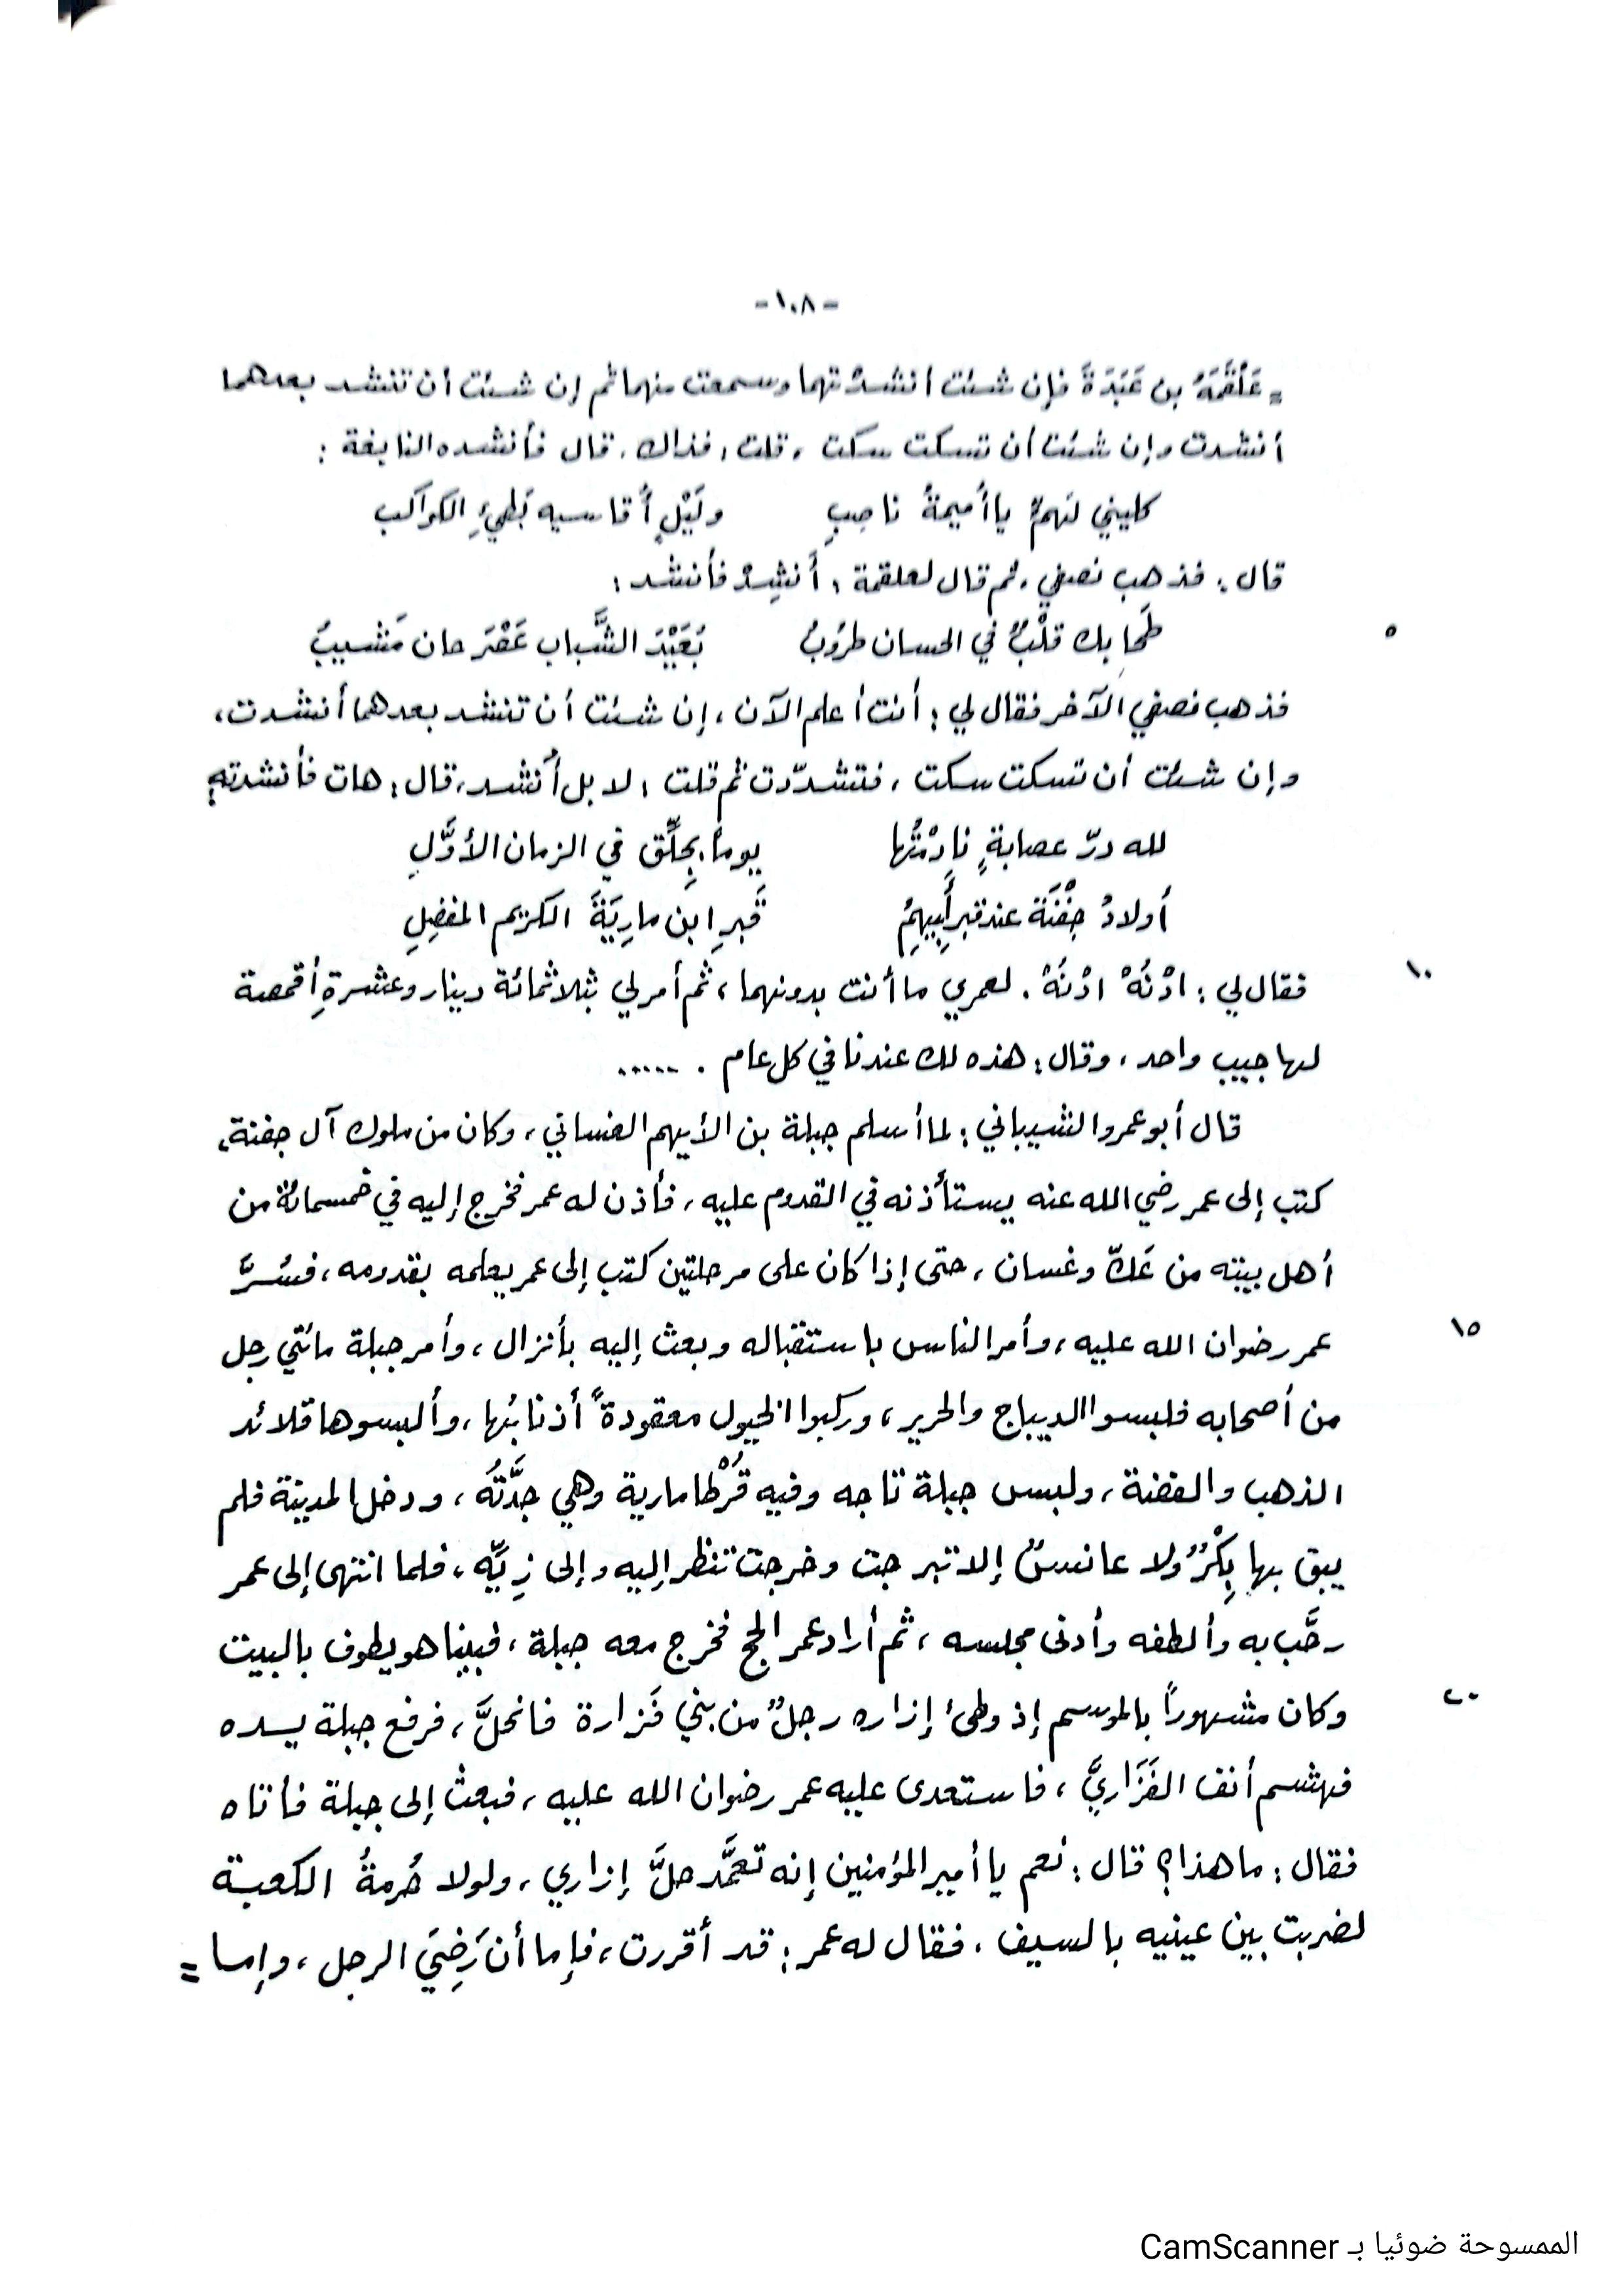 -١٠٨-
= عَلْقَمَةُ بن عَبَدَةَ فإن شئت أنشدْتهما وسمعت منهما ثم إن شئت أن تنشد بعدهما
أنشدت وإن شئت أن تسكت سكت ، قلت : فذاك . قال فأنشده النابغة :
كليني لهمٍّ يا أُميمةُ ناصِبِ ولَيْلٍ أُقاسيه بَطيءِ الكواكب
قال : فذهب نصفي ، ثم قال لعلقمة : أَنشِدْ فأنشد :
٥ طَحا بك قلْبٌ في الحسان طروبُ بُعَيْدَ الشَّباب عَصْرَ حان مَشيبُ
فذهب نصفي الآخر فقال لي : أنت أعلم الآن ، إن شئت أن تنشد بعدهما أنشدت ،
وإن شئت أن تسكت سكت ، فتشدّدت ثم قلت : لا بل أُنشد ، قال : هات فأنشدته :
لله درّ عصابةٍ نادمْتُها يوماً بجلِّق في الزمان الأوَّلِ
أولادُ جَفْنَة عند قبر أَبيهمُ قَبرِ ابن مارِيَةَ الكريم المفضِلِ
١٠ فقال لي : ادْنُهْ ادْنُهْ . لعمري ما أنت بدونهما ، ثم أمر لي بثلاثمائة دينار وعشرةِ أقمصة
لها جيب واحد ، وقال : هذه لك عندنا في كل عام . .....
قال أبو عمرو الشيباني : لما أسلم جبلة بن الأيهم الغساني ، وكان من ملوك آل جفنة ،
كتب إلى عمر رضي الله عنه يستأذنه في القدوم عليه ، فأذن له عمر فخرج إليه في خمسمائة من
أهل بيته من عَكّ وغسان ، حتى إذا كان على مرحلتين كتب إلى عمر يعلمه بقدومه ، فسُرَّ
١٥ عمر رضوان الله عليه ، وأمر الناس باستقباله وبعث إليه بأنزال ، وأمر جبلة مائتي رجل
من أصحابه فلبسوا الديباج والحرير ، وركبوا الخيول معقودةً أذنابُها ، وألبسوها قلائد
الذهب والفضة ، ولبس جبلة تاجه وفيه قُرْطا مارية وهي جدَّتُه ، ودخل المدينة فلم
يبق بها بِكْرٌ ولا عانسٌ إلا تبرجت وخرجت تنظر إليه وإلى زِيِّه ، فلما انتهى إلى عمر
رحَّب به وألطفه وأدنى مجلسه ، ثم أراد عمر الحج فخرج معه جبلة ، فبينا هو يطوف بالبيت
٢٠ وكان مشهوراً بالموسم إذ وطئ إزاره رجلٌ من بني فَزارة فانحلَّ ، فرفع جبلة يده
فهشم أنف الفَزَاريِّ ، فاستعدى عليه عمر رضوان الله عليه ، فبعث إلى جبلة فأتاه
فقال : ما هذا ؟ قال : نعم يا أمير المؤمنين إنه تعمَّد حلَّ إزاري ، ولولا حُرمةُ الكعبة
لضربت بين عينيه بالسيف . فقال له عمر : قد أقررت ، فإما أن رَضِيَ الرجل ، وإما =
الممسوحة ضوئيا بـ CamScanner